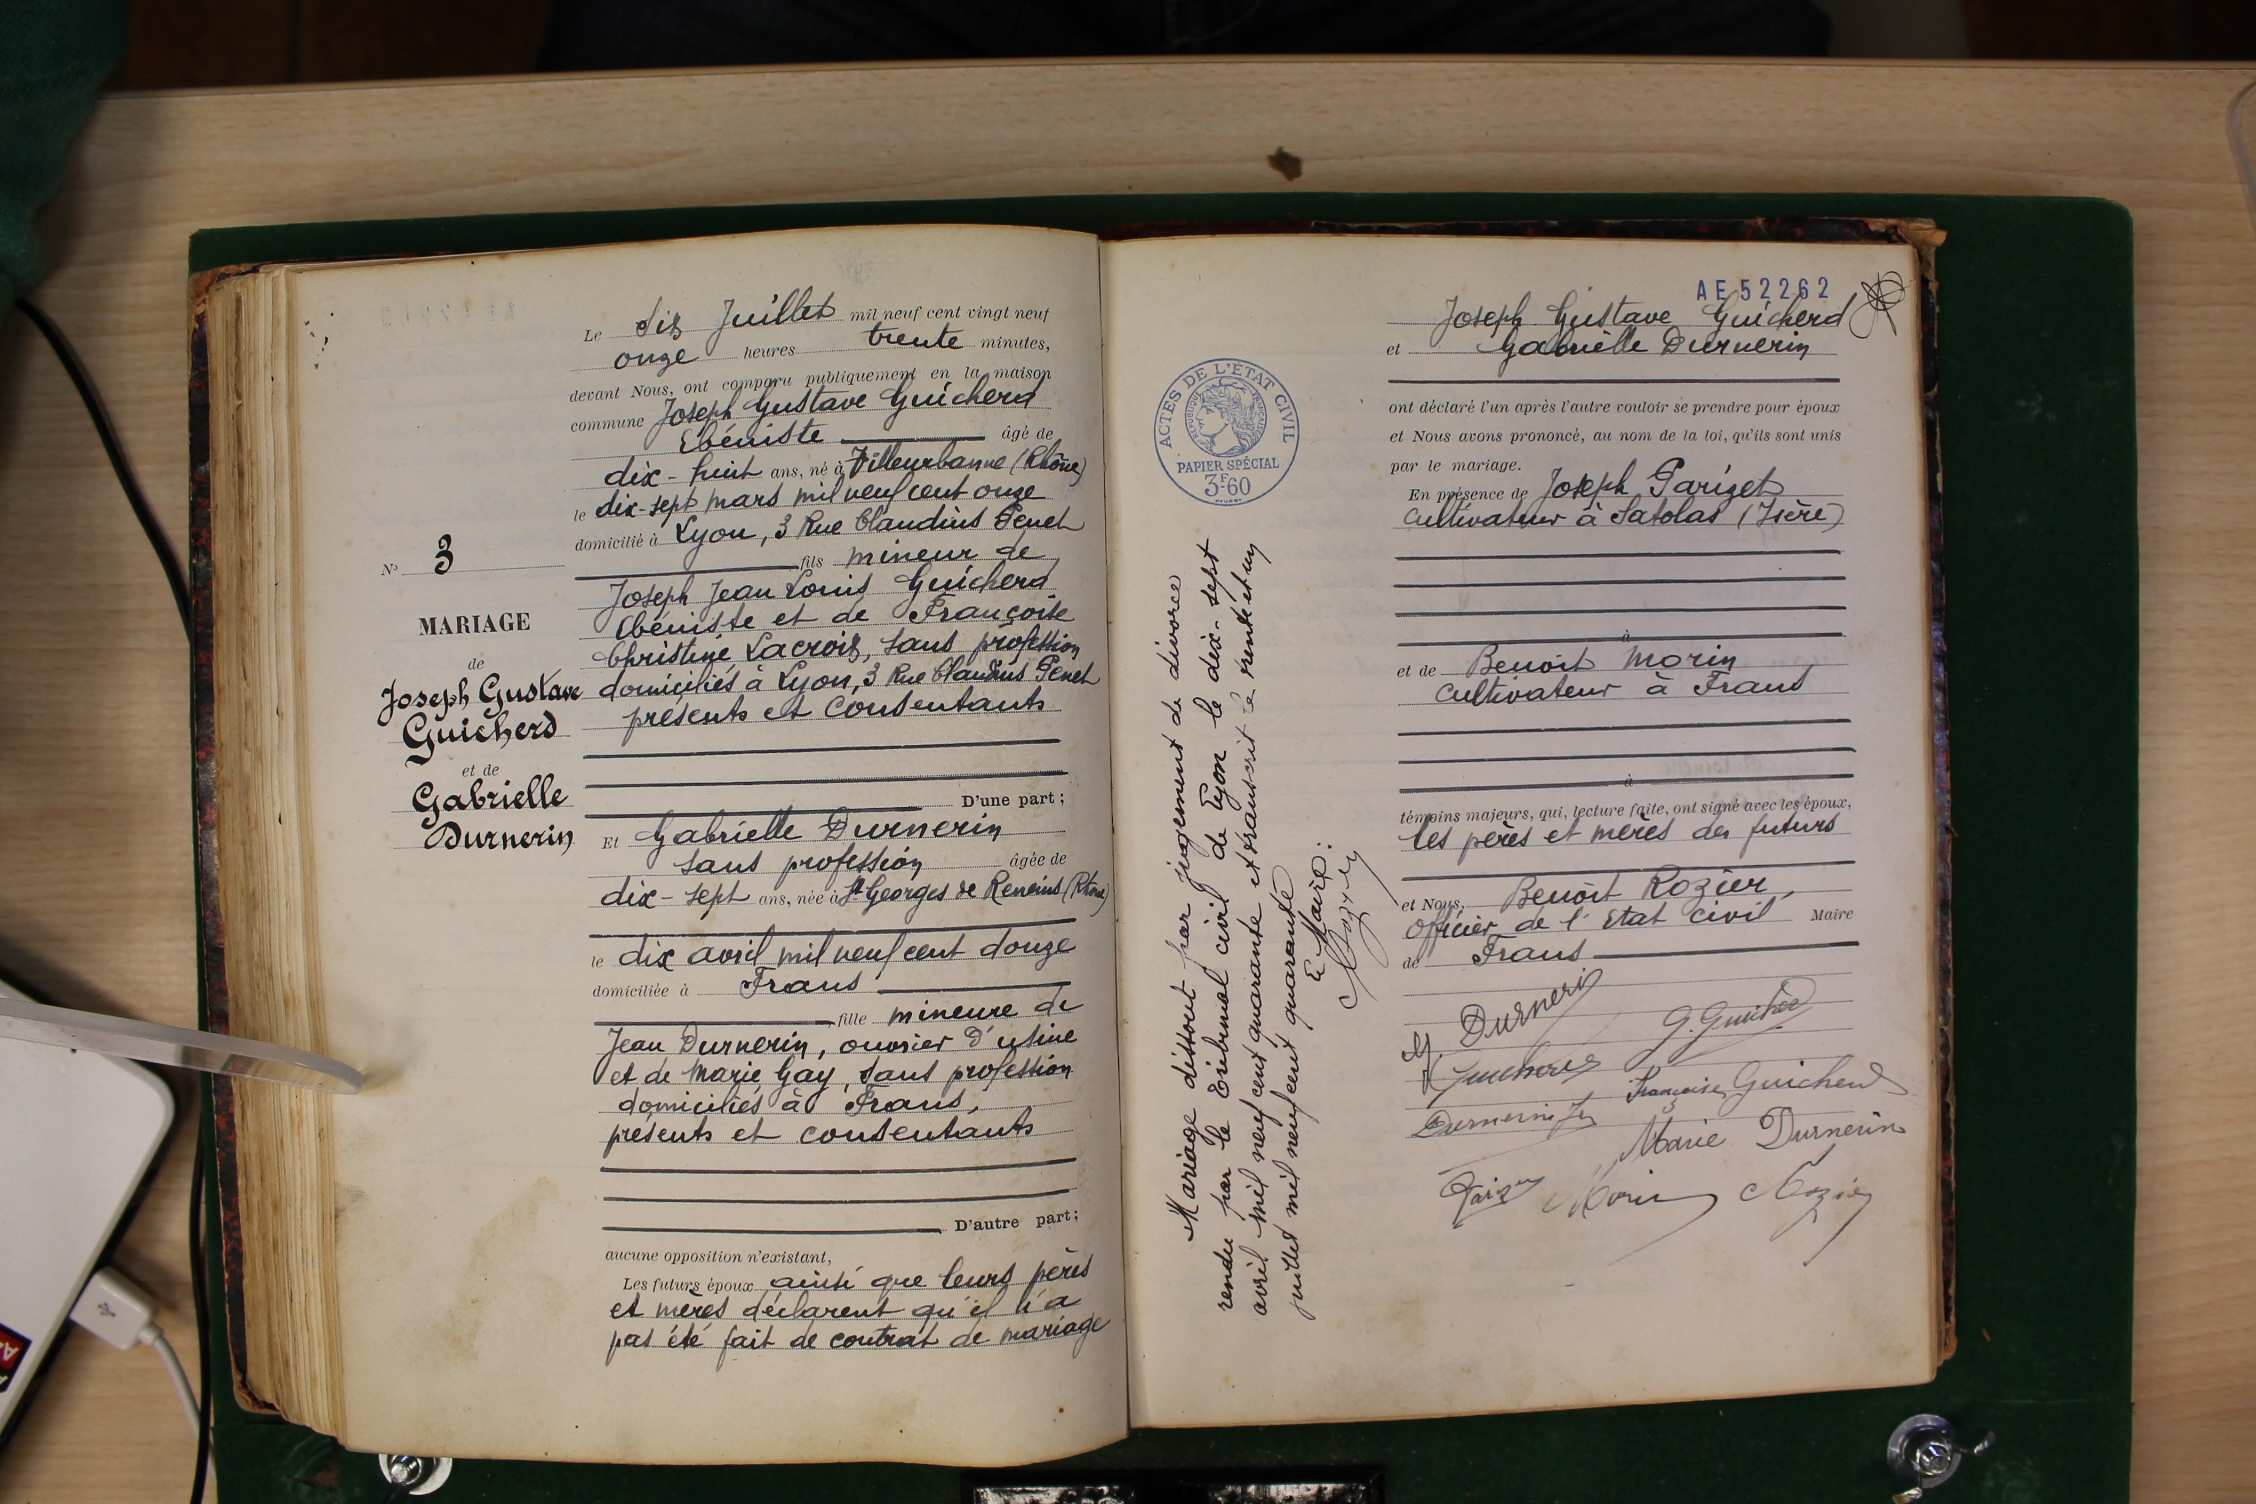 Le dix Juillet mil neuf cent vingt neuf
onze heures trente minutes,
devant Nous, ont comparu publiquement en la maison
commune Joseph Gustave Guicherd
Ebéniste âgé de
dix-huit ans, né à Villeurbanne (Rhône)
le dix-sept mars mil neuf cent onze
domicilié à Lyon, 3 Rue Claudius Penet
fils mineur de
Joseph Jean Louis Guicherd
Ebéniste et de Françoise
Christine Lacroix, sans profession
domiciliés à Lyon, 3 Rue Claudius Penet
présents et consentants
D'une part;
Et Gabrielle Durnerin
sans profession âgée de
dix-sept ans, née à St Georges de Reneins (Rhône)
le dix avril mil neuf cent douze
domiciliée à Frans
fille mineure de
Jean Durnerin, ouvrier d'usine
et de Marie Gay, sans profession
domiciliés à Frans,
présents et consentants
D'autre part;
aucune opposition n'existant,
Les futurs époux ainsi que leurs pères
et mères déclarent qu'il n'a
pas été fait de contrat de mariage
No 3
MARIAGE
de
Joseph Gustave
Guicherd
et de
Gabrielle
Durnerin
AE52262
Joseph Gustave Guicherd
et Gabrielle Durnerin
ont déclaré l'un après l'autre vouloir se prendre pour époux
et Nous avons prononcé, au nom de la loi, qu'ils sont unis
par le mariage.
En présence de Joseph Parizet
cultivateur à Satolas (Isère)
à
et de Benoît Morin
cultivateur à Frans
à
témoins majeurs, qui, lecture faite, ont signé avec les époux,
les pères et mères des futurs
et Nous, Benoît Rozier,
officier de l'Etat civil Maire
de Frans
G. Durnerin
G. Guicherd
Guicherd
Françoise Guicherd
Durnerin
Marie Durnerin
Parizet
Morin
Rozier
ACTES DE L'ETAT CIVIL
REPUBLIQUE FRANÇAISE
PAPIER SPÉCIAL
3F60
Mariage dissout par jugement de divorce
rendu par le Tribunal civil de Lyon le dix-sept
avril mil neuf cent quarante et transcrit le trente et un
juillet mil neuf cent quarante
Le Maire:
Rozier